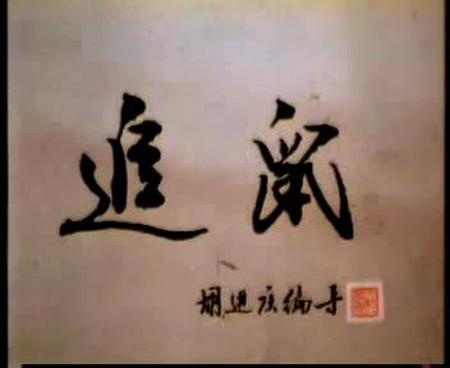 追鼠
胡进庆编导